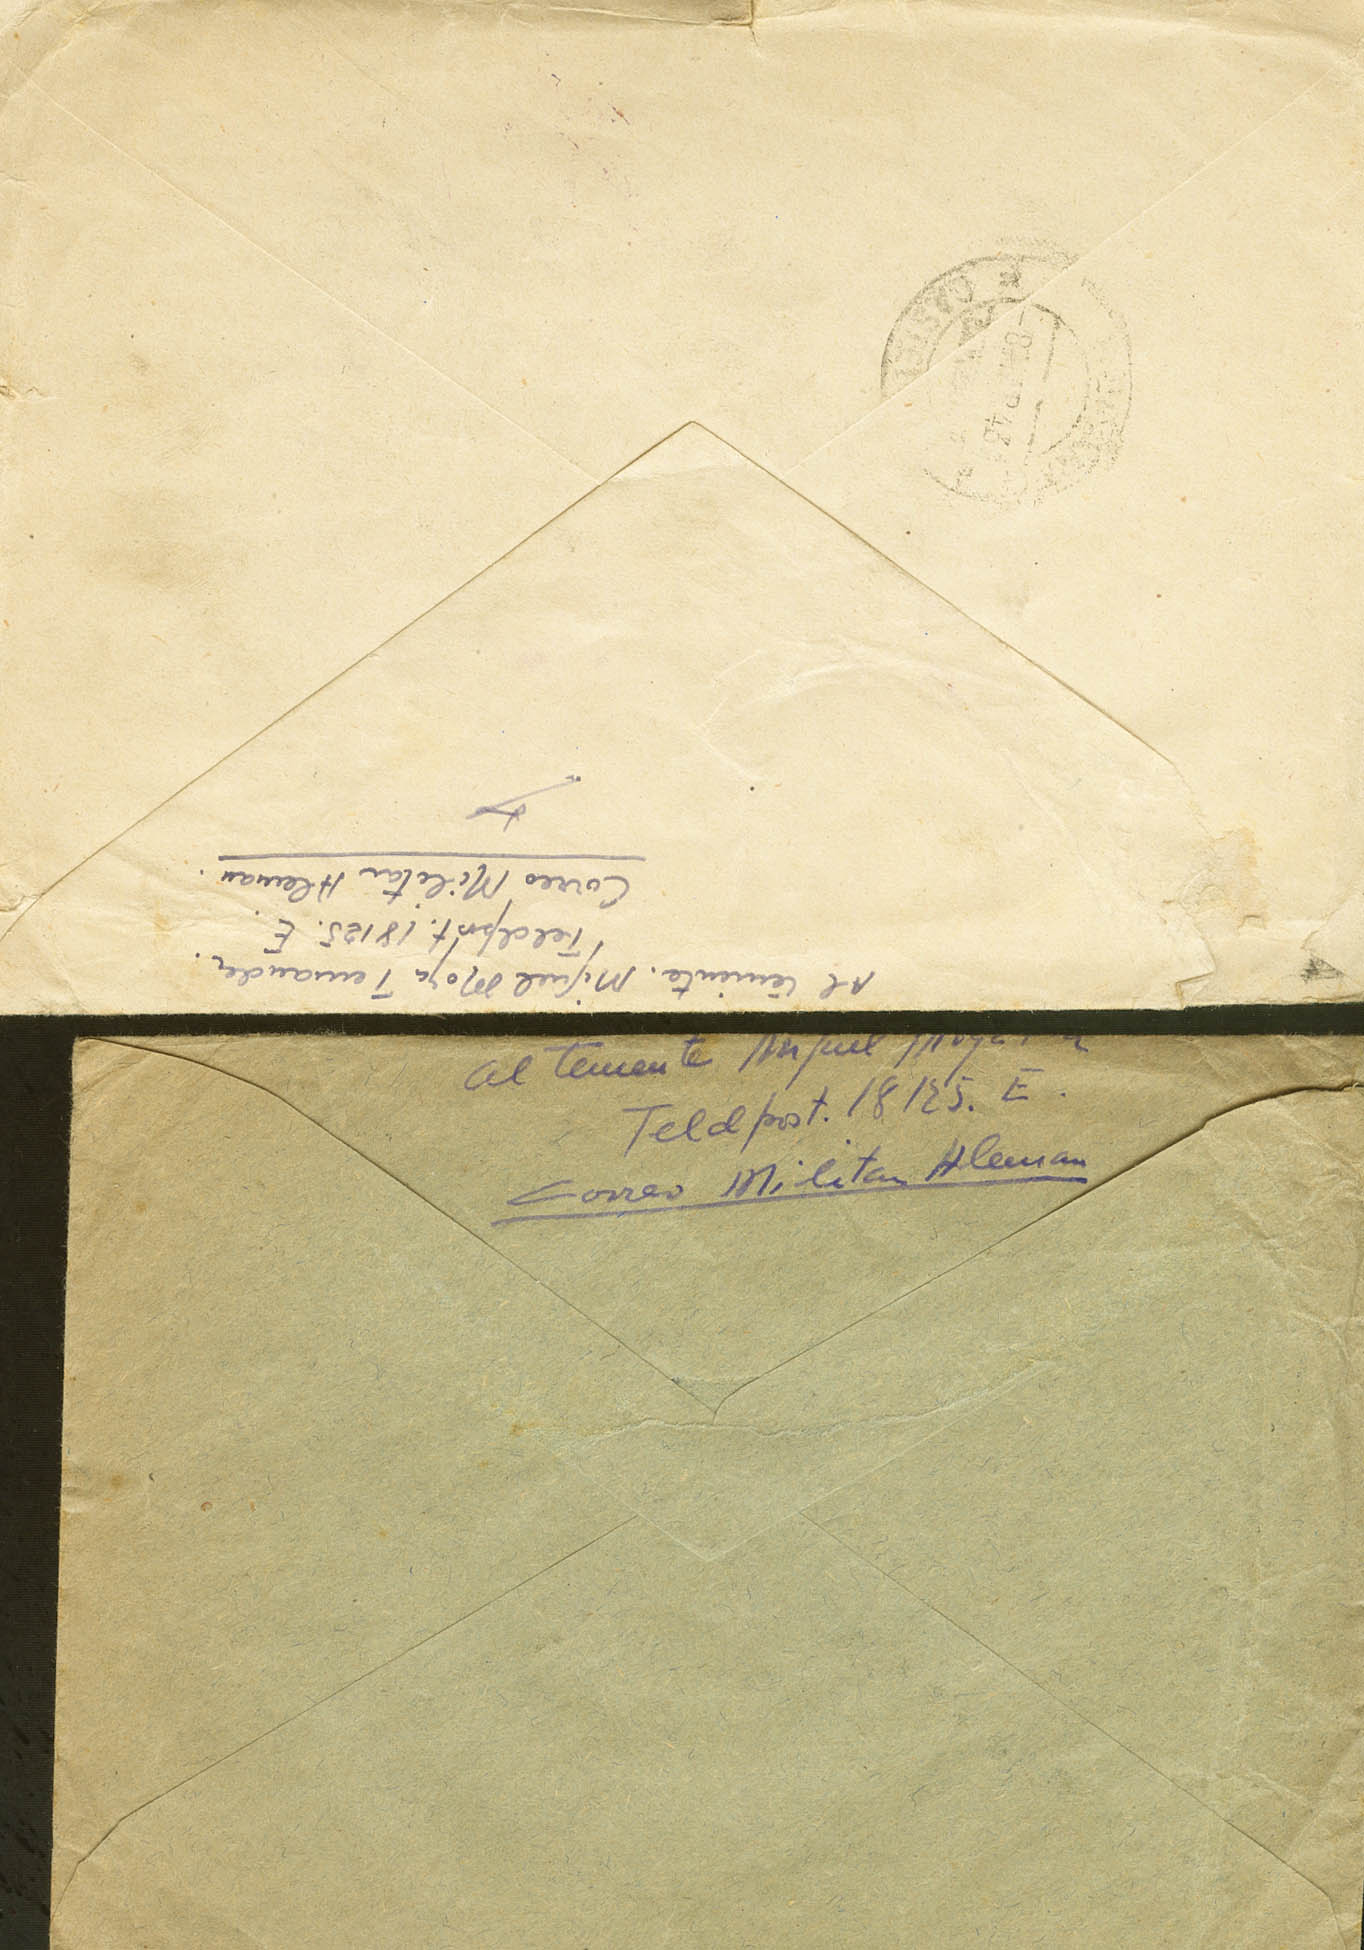 Al teniente. Miguel Moya Fernandez.
Feldpost. 18125. E.
Correo Militar Aleman.
al teniente Miguel
Feldpost. 18125. E.
Correo Militar Aleman